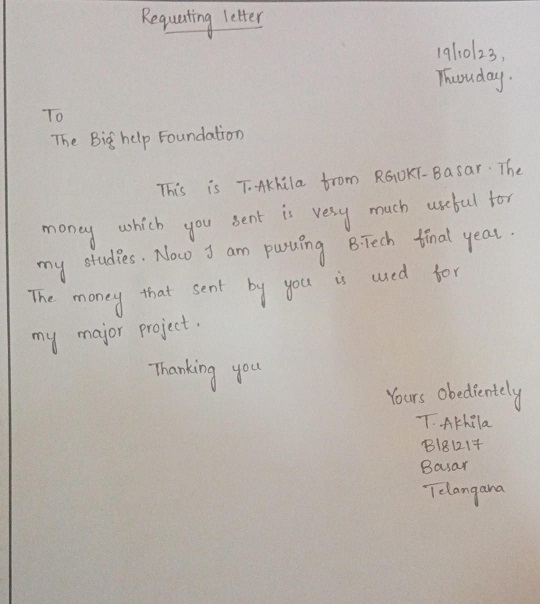 Requesting letter
19/10/23,
Thursday.
To
The Big help Foundation
This is T.Akhila from RGUKT-Basar. The
money which you sent is very much useful for
my studies. Now I am pursuing B.Tech final year.
The money that sent by you is used for
my major project.
Thanking you
Yours Obedientely
T.Akhila
B181217
Basar
Telangana